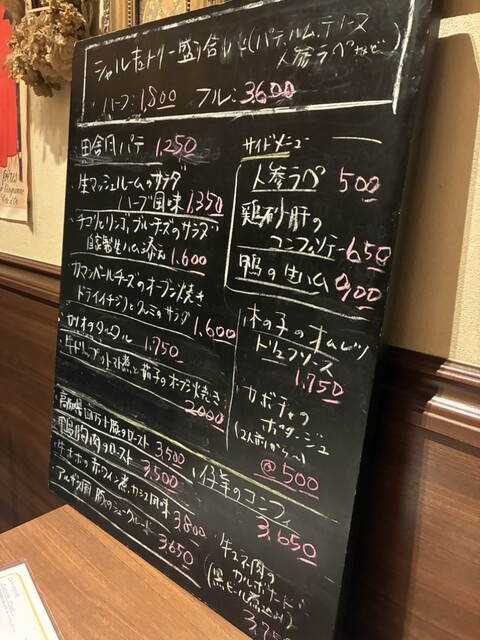 シャルキュトリー盛り合わせ(パテ、ハム、テリーヌ
人参ラペなど)
ハーフ:1,800 フル:3,600
田舎風パテ 1,250
・生マッシュルームのサラダ
ハーブ風味 1,350
・チコリとリンゴ、ブルーチーズのサラダ
自家製生ハム添え 1,600
・カマンベールチーズのオーブン焼き
ドライイチジクとクルミのサラダ 1,600
1,750
・牛トリップのトマト煮と茄子のオーブン焼き
2000
・高知県四万十豚のロースト 3,500
・鴨胸肉のロースト 3,500
・牛ホホの赤ワイン煮、カシス風味 3800
・アルザス風 豚のシュークルート 3,650
サイドメニュー
人参ラペ 500
鶏砂肝の
コンフィソテー 650
鴨の生ハム 900
・木の子のオムレツ
トリュフソース
1,750
・カボチャの
ポタージュ
(2人前から〜)
@500
・仔羊のコンフィ
3,650
・牛スネ肉の
カルボナード
(黒ビール煮込み)